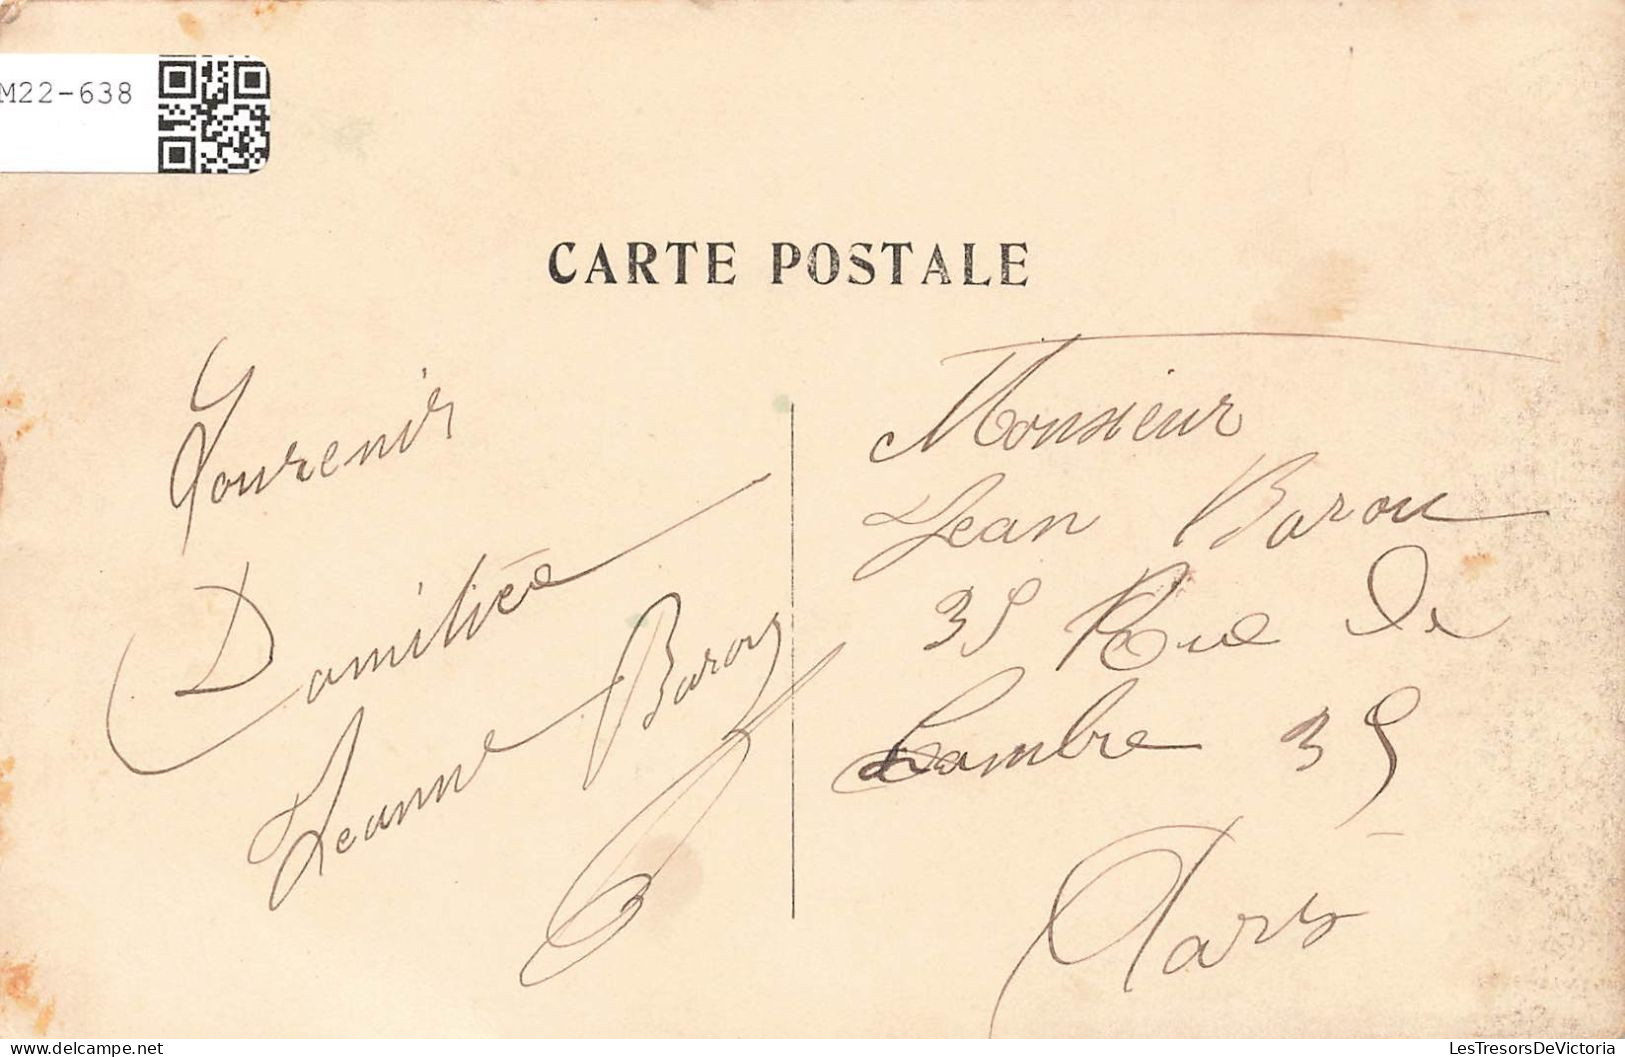 M22-638
CARTE POSTALE
Souvenir
Damitiée
Jeanne Barou
Monsieur
Jean Barou
35 Rue de
Lambre 35
Paris
LesTresorsDeVictoria